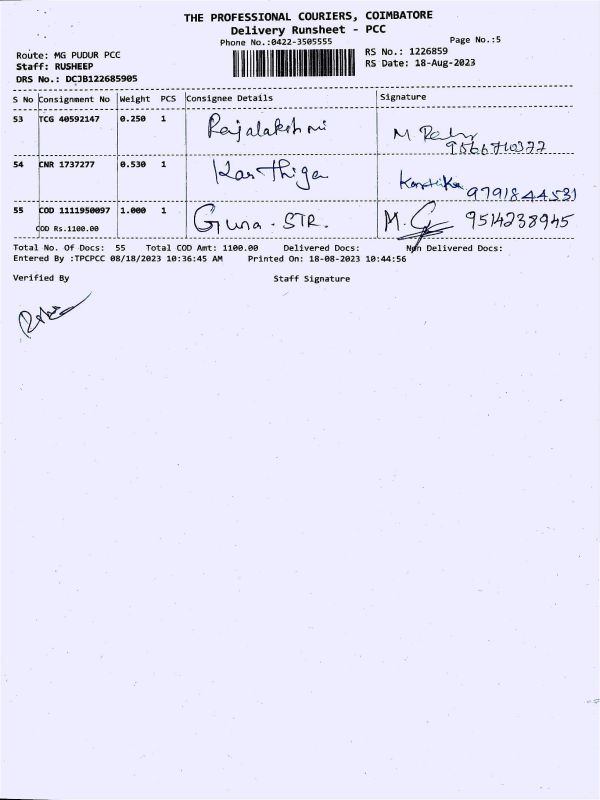 THE PROFESSIONAL COURIERS, COIMBATORE
Delivery Runsheet - PCC
Phone No.:0422-3505555 Page No.:5
Route: MG PUDUR PCC RS No.: 1226859
Staff: RUSHEEP RS Date: 18-Aug-2023
DRS No.: DCJB122685905
S No Consignment No Weight PCS Consignee Details Signature
53 TCG 40592147 0.250 1 Rajalakshmi M
9566710377
54 CNR 1737277 0.530 1 Karthiga Karthika
9791844531
55 COD 1111950097 1.000 1 Guna - STR. M. G 9514238945
COD Rs.1100.00
Total No. Of Docs: 55 Total COD Amt: 1100.00 Delivered Docs: Non Delivered Docs:
Entered By :TPCPCC 08/18/2023 10:36:45 AM Printed On: 18-08-2023 10:44:56
Verified By Staff Signature